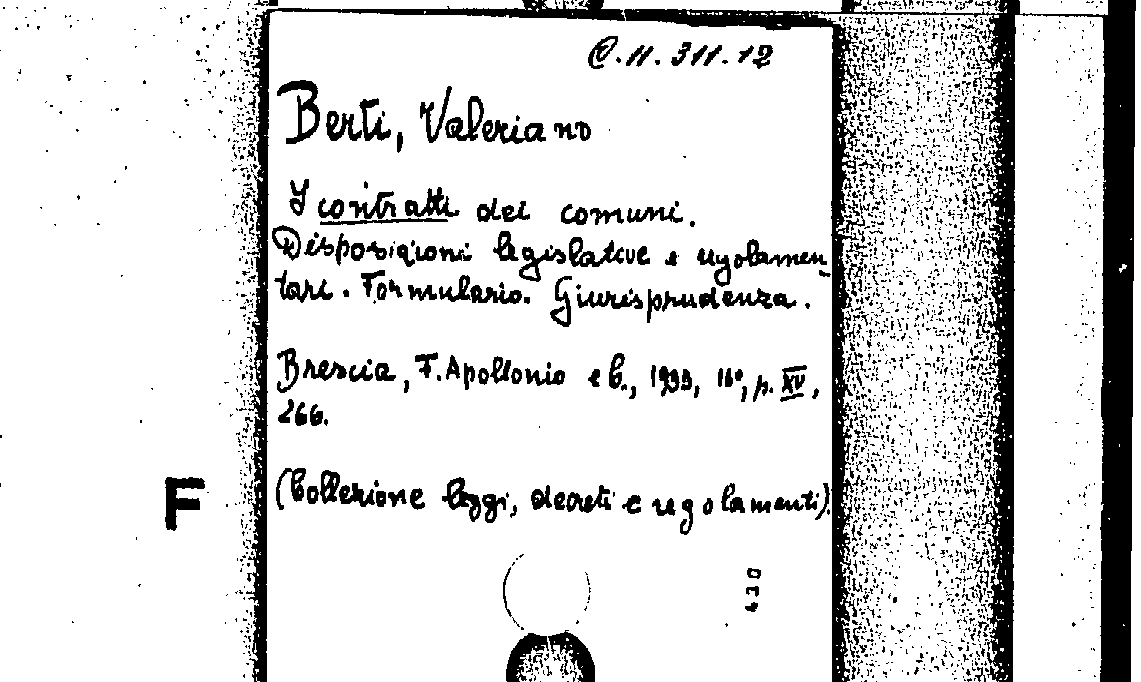 C.11.311.12
Berti, Valeriano
I contratti dei comuni.
Disposizioni legislative e regolamen-
tari. Formulario. Giurisprudenza.
Brescia, F. Apollonio e C., 1933, 16°, p. XV,
266.
(Collezione leggi, decreti e regolamenti).
F
430